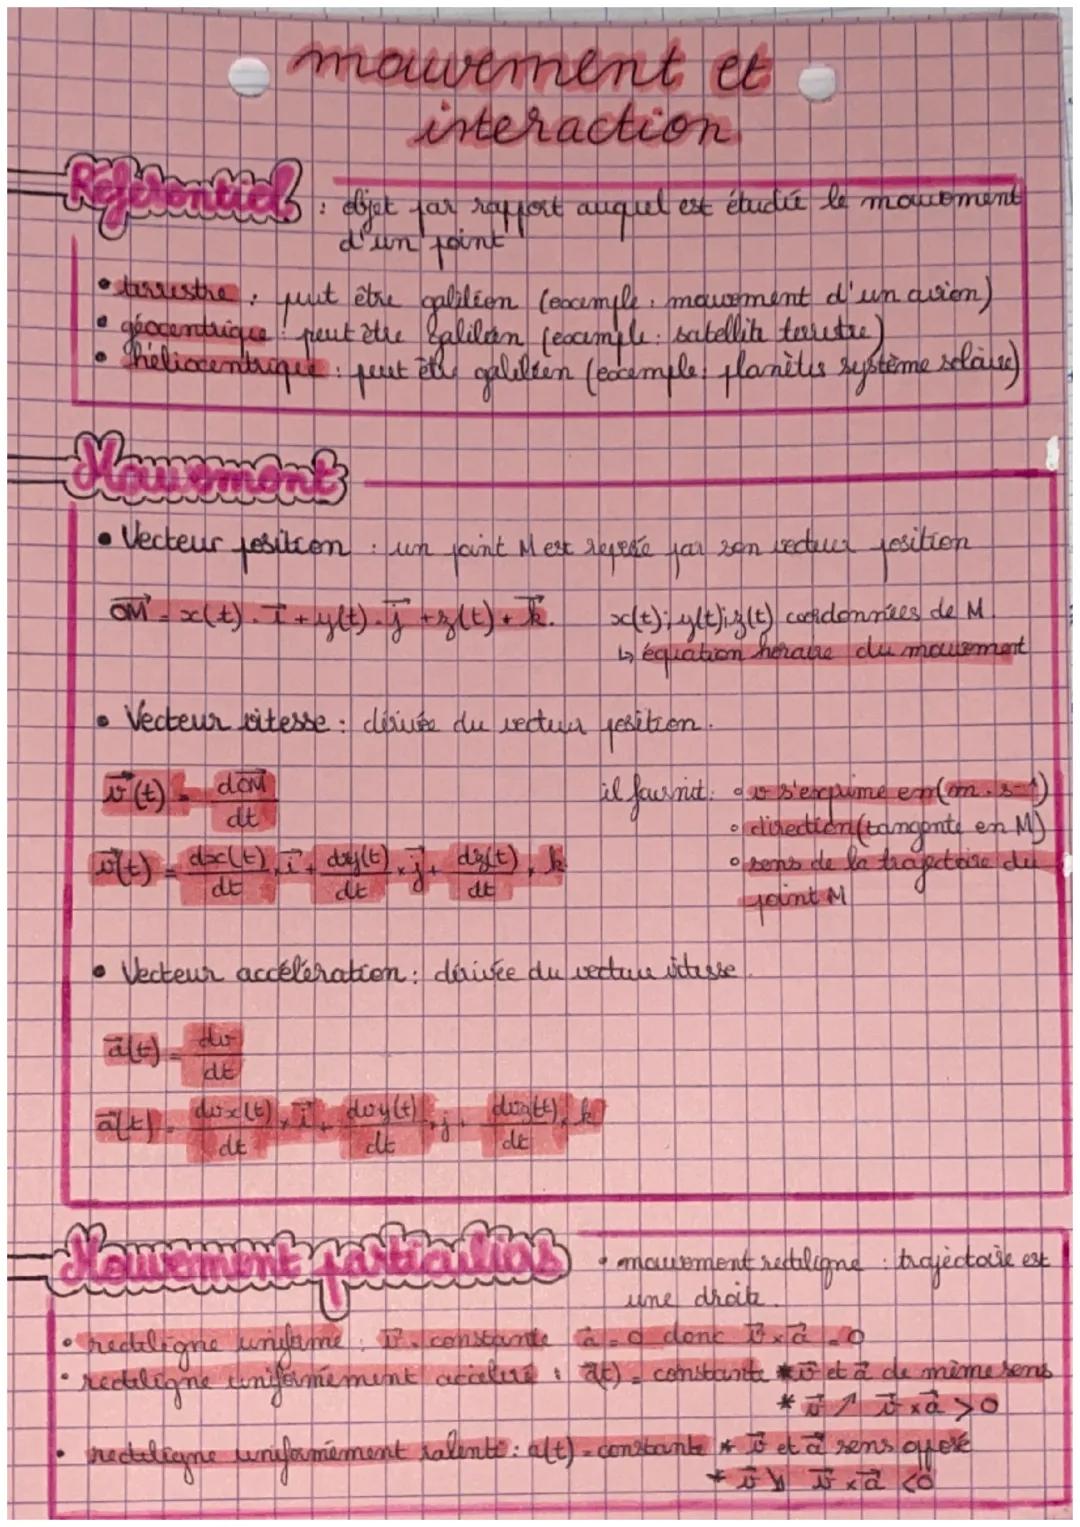 mouvement et
interaction
Référentiel : objet par rapport auquel est étudié le mouvement
d'un point
• terrestre : peut être galiléen (exemple : mouvement d'un avion)
• géocentrique : peut être galiléen (exemple : satellite terrestre)
• héliocentrique : peut être galiléen (exemple : planètes système solaire)
Mouvement
• Vecteur position : un point M est repéré par son vecteur position
OM⃗ = x(t) . i⃗ + y(t) . j⃗ + z(t) + k⃗. x(t) ; y(t) ; z(t) coordonnées de M.
↳ équation horaire du mouvement
• Vecteur vitesse : dérivée du vecteur position.
v⃗(t) = dOM⃗/dt il fournit : • v s'exprime en (m.s⁻¹)
• direction (tangente en M)
v⃗(t) = dx(t)/dt × i⃗ + dy(t)/dt × j⃗ + dz(t)/dt × k • sens de la trajectoire du
point M
• Vecteur accélération : dérivée du vecteur vitesse.
a⃗(t) = dv/dt
a⃗(t) = dvx(t)/dt × i⃗ + dvy(t)/dt × j + dvz(t)/dt × k
Mouvement particuliers • mouvement rectiligne : trajectoire est
une droite.
• rectiligne uniforme : v⃗ = constante a⃗ = 0 donc v⃗ × a⃗ = 0
• rectiligne uniformément accéléré : a⃗(t) = constante * v⃗ et a⃗ de même sens
* v⃗ ↗ v⃗ × a⃗ > 0
• rectiligne uniformément ralenti : a(t) = constante * v⃗ et a⃗ sens opposé
* v⃗ ↘ v⃗ × a⃗ < 0